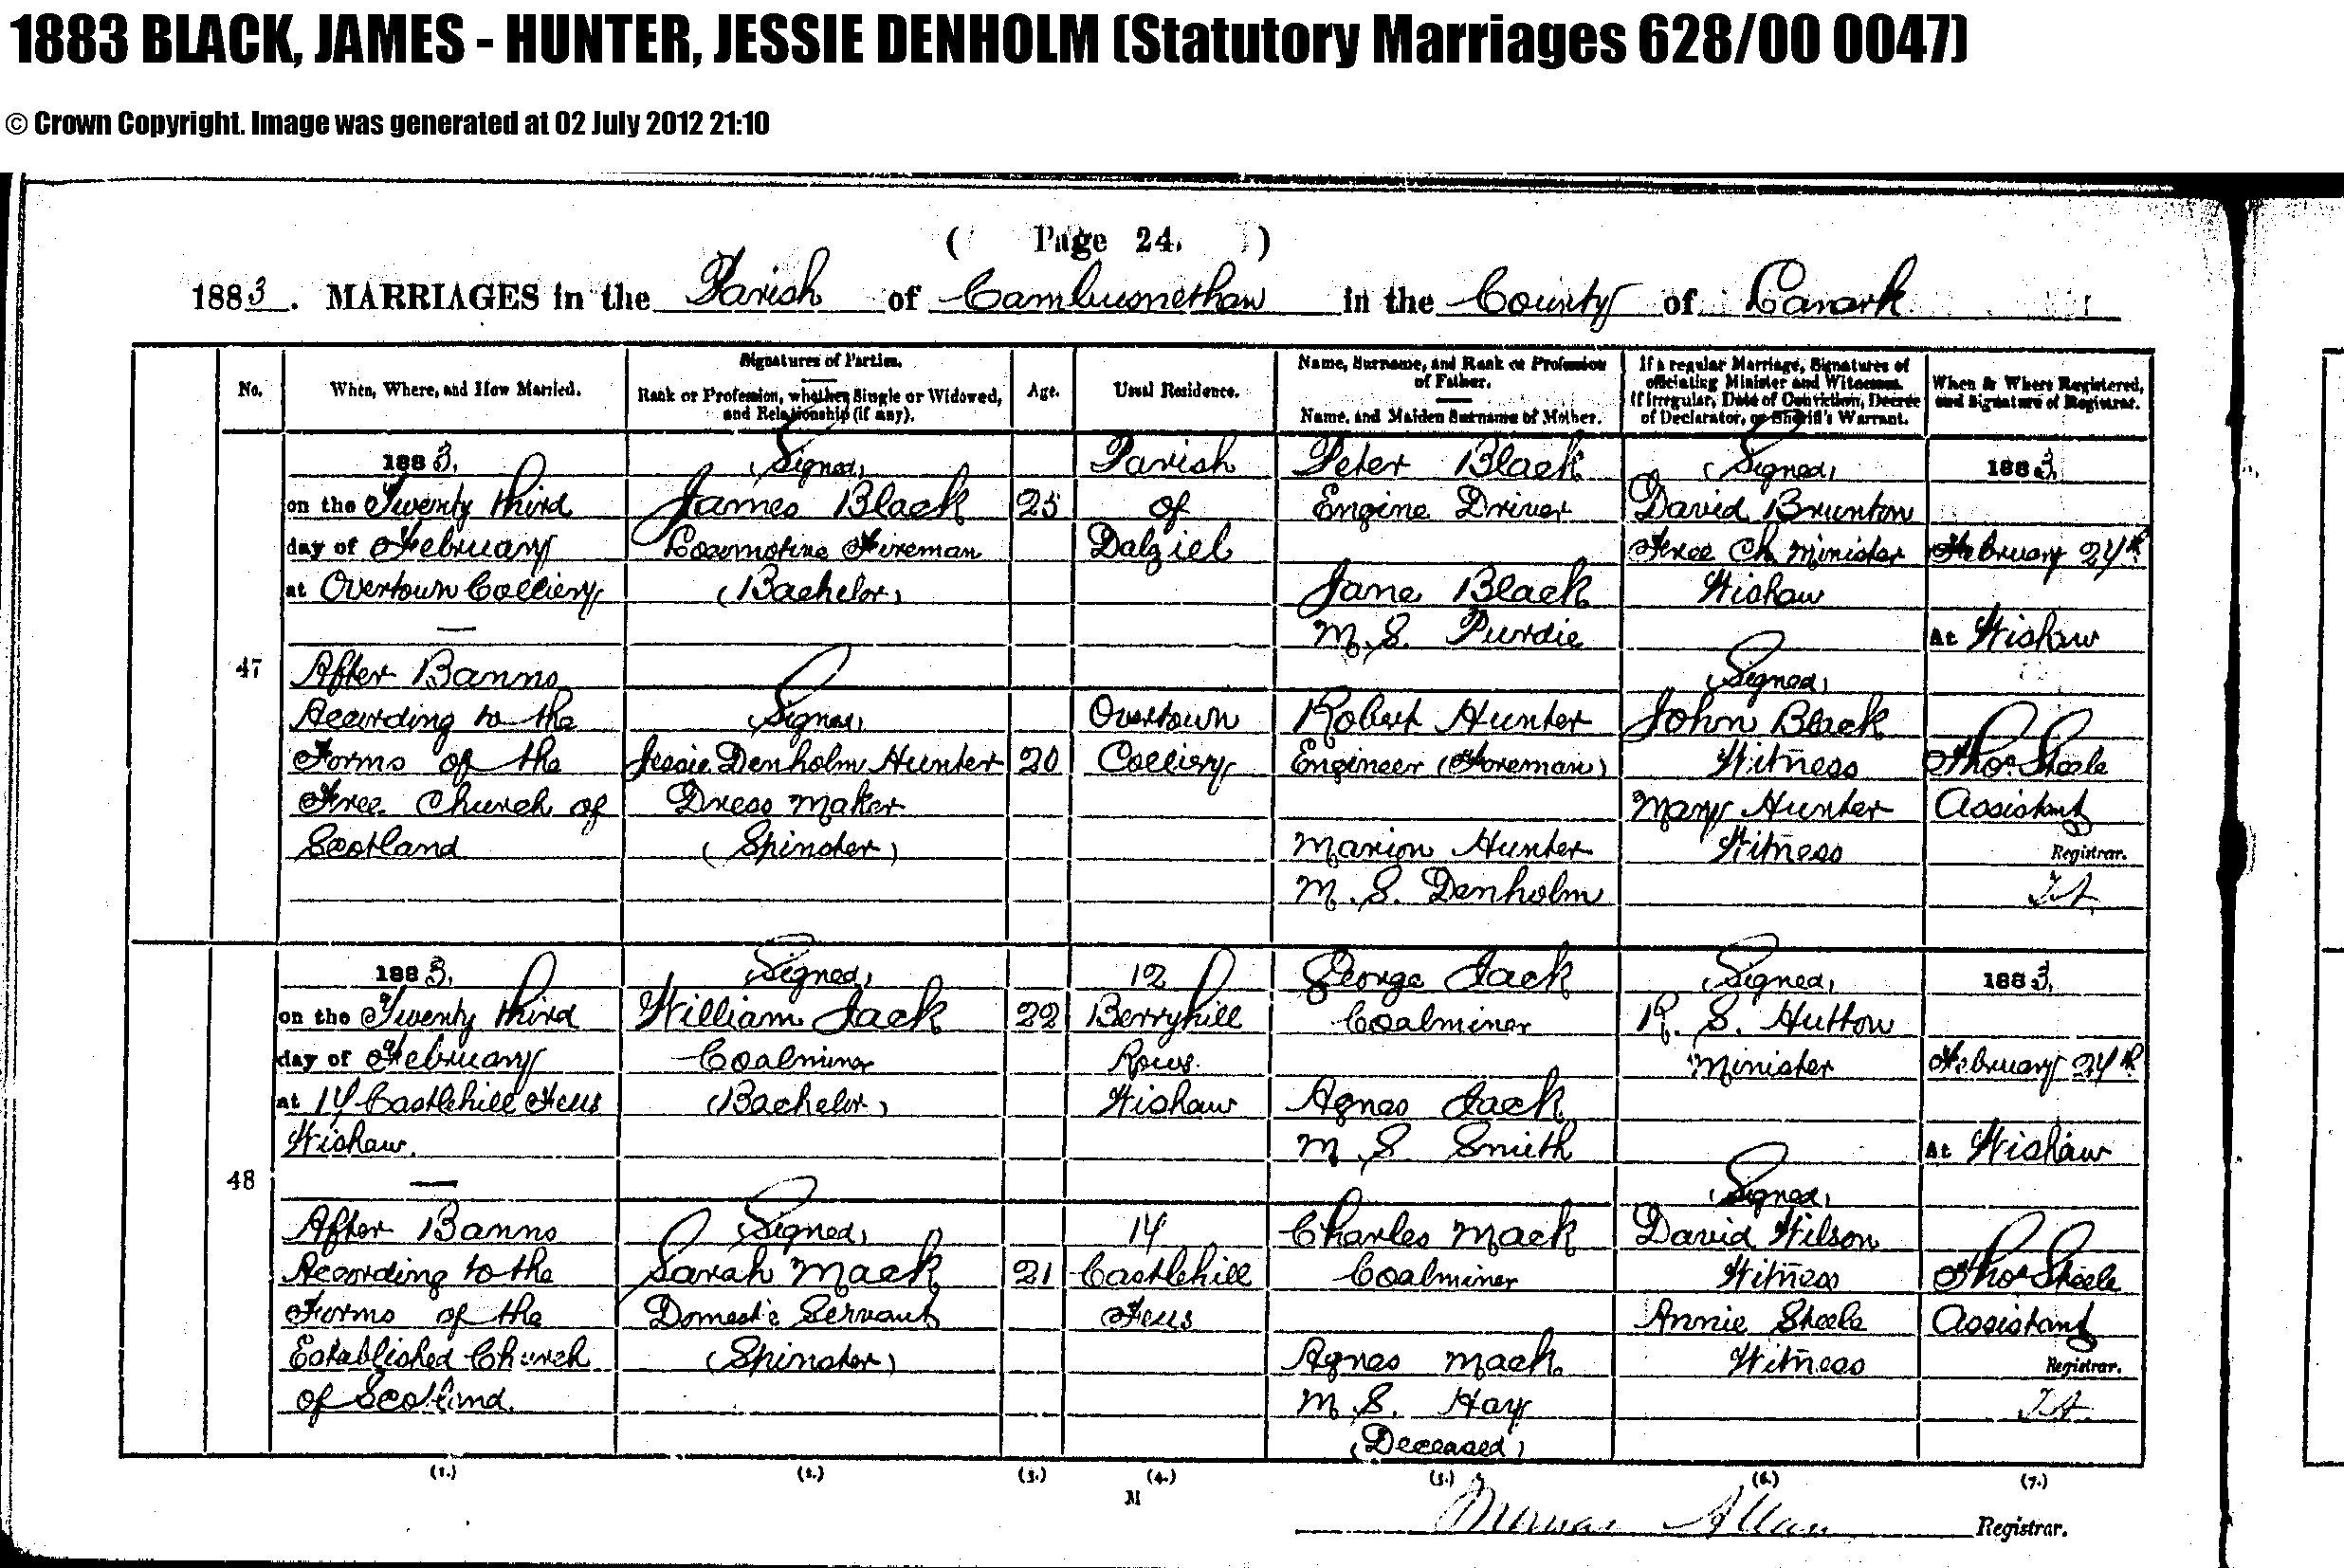 1883 BLACK, JAMES - HUNTER, JESSIE DENHOLM (Statutory Marriages 628/00 0047)
© Crown Copyright. Image was generated at 02 July 2012 21:10
( Page 24. )
1883. MARRIAGES in the Parish of Cambusnethan in the County of Lanark
No.
When, Where, and How Married.
Signatures of Parties.
Rank or Profession, whether Single or Widowed,
and Relationship (if any).
Age.
Usual Residence.
Name, Surname, and Rank or Profession
of Father.
Name, and Maiden Surname of Mother.
If a regular Marriage, Signatures of
officiating Minister and Witnesses.
If irregular, Date of Conviction, Decree
of Declarator, or Sheriff's Warrant.
When & Where Registered,
and Signature of Registrar.
47
1883.
on the Twenty third
day of February
at Overtown Colliery
After Banns
According to the
Forms of the
Free Church of
Scotland
(Signed)
James Black
Locomotive Fireman
(Bachelor)
(Signed)
Jessie Denholm Hunter
Dress Maker
(Spinster)
25
20
Parish
of
Dalziel
Overtown
Colliery
Peter Black
Engine Driver
Jane Black
M.S. Purdie
Robert Hunter
Engineer (Foreman)
Marion Hunter
M.S. Denholm
(Signed)
David Brunton
Free Ch. Minister
Wishaw
(Signed)
John Black
Witness
Mary Hunter
Witness
1883.
February 24th
At Wishaw
Thos. Steele
Assistant
Registrar.
48
1883.
on the Twenty third
day of February
at 14 Castlehill Feus
Wishaw.
After Banns
According to the
Forms of the
Established Church
of Scotland.
(Signed)
William Jack
Coalminer
(Bachelor)
(Signed)
Sarah Mack
Domestic Servant
(Spinster)
22
21
12
Berryhill
Rows
Wishaw
14
Castlehill
Feus
George Jack
Coalminer
Agnes Jack
M.S. Smith
Charles Mack
Coalminer
Agnes Mack
M.S. Hay
(Deceased)
(Signed)
R. S. Hutton
Minister
(Signed)
David Wilson
Witness
Annie Steele
Witness
1883.
February 24th
At Wishaw
Thos. Steele
Assistant
Registrar.
(1.) (2.) (3.) (4.) (5.) (6.) (7.)
M
Allan Registrar.